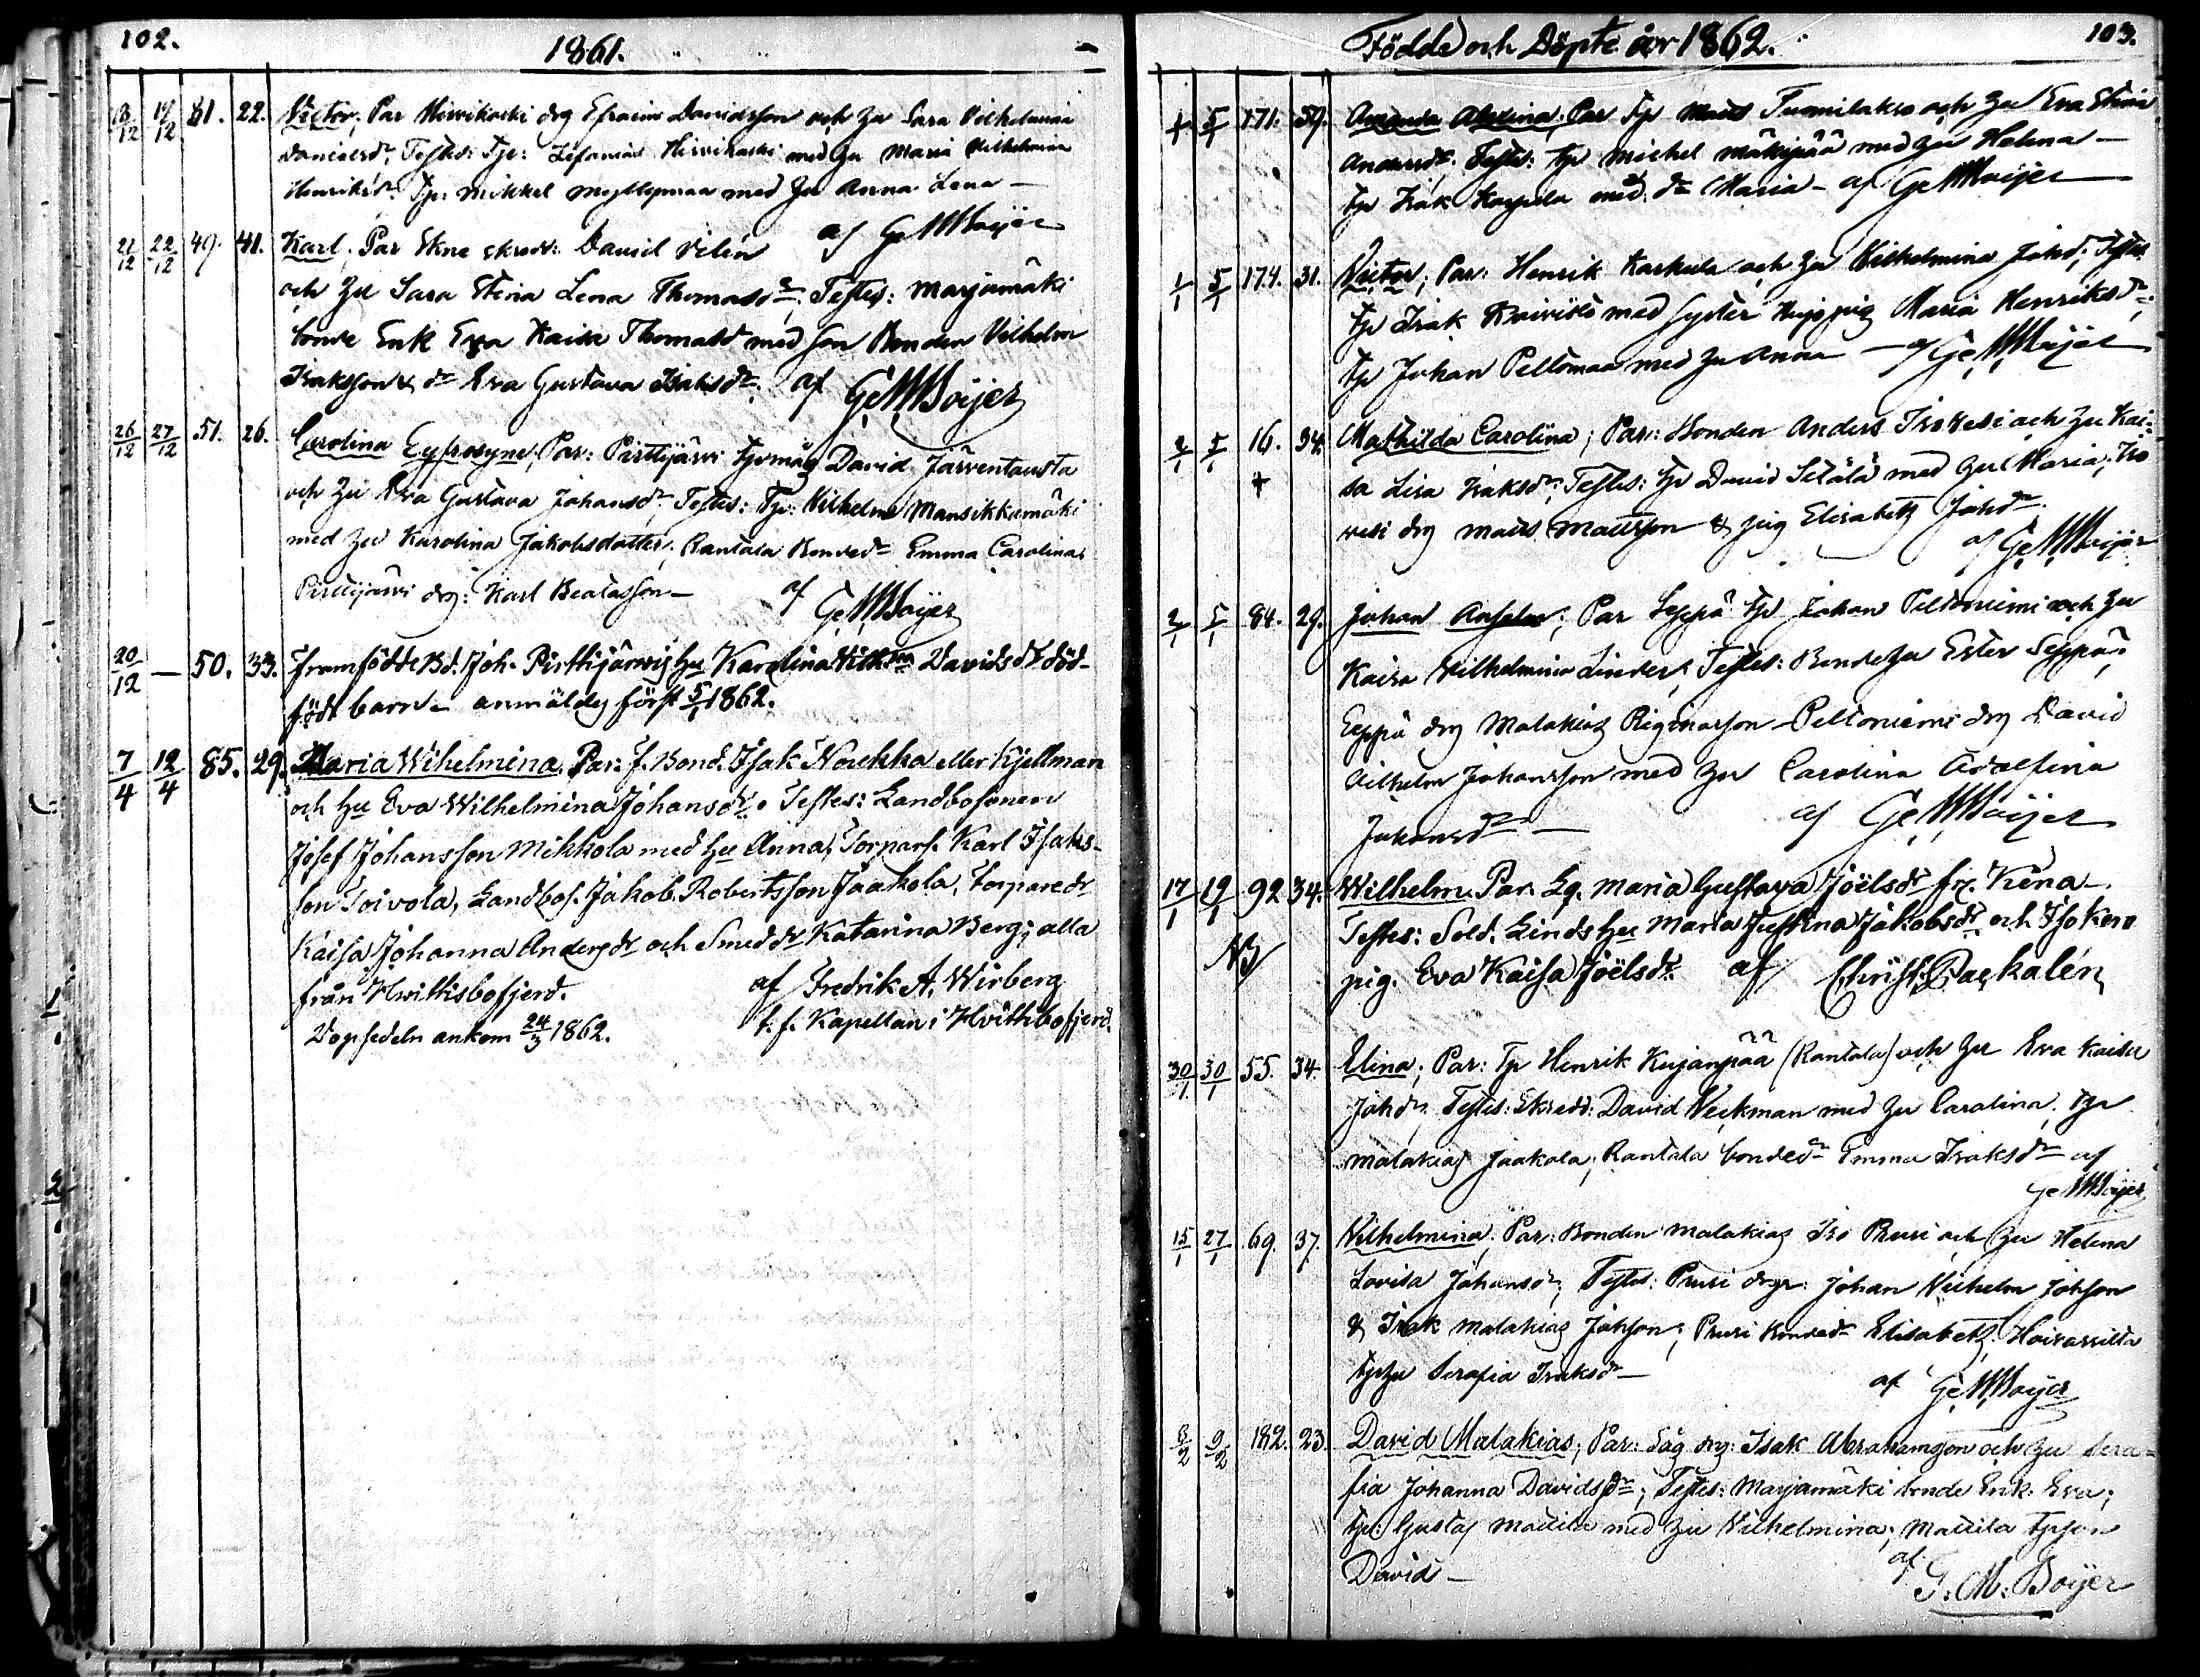 102.
1861.
18/12 19/12 81. 22. Victor; Par Hirvikoski drg Efraim Davidsson och hu Sara Vilhelmina
Danielsdr; Testes: Tp: Zefanias Hirvikoski med hu Maria Vilhelmina
Henriksdr. Tp: Mikkel Myllymaa med hu Anna Lena —
af GeMMBoijer
21/12 22/12 49. 41. Karl; Par Skredd: David Vilén
och hu Sara Stina Lena Thomasdr; Testes: Marjamäki
bonde Enk Eva Kaisa Thomasd med son Bonden Vilhelm
Isaksson & dr Eva Gustava Isaksdr. af GeMMBoijer
26/12 27/12 51. 26. Carolina Eufrosyne; Par: Pirttijärvi Tpmåg David Järventausta
och hu Eva Gustava Johansdr. Testes: Tp: Vilhelm Mansikkamäki
med hu Karolina Jakobsdotter; Rantala Bondedr Emma Carolina
Pirttijärvi drg: Karl Beatasson —
af GeMMBoijer
20/12 — 50. 33. framfödde Bd. Joh. Pirttijärwis hu Karolina Vilhna Davidsdr död-
födt barn — anmäldes först 5/1 1862.
7/4 12/4 85. 29. Maria Wihelmina. Par: f. Bond. Isak Noukka eller Kjellman
och hu Eva Wilhelmina Johansdr. Testes: Landbosonen
Josef Johansson Mikkola med hu Anna, Torpars. Karl Isaks-
son Toivola, Landbos. Jakob Robertsson Jaakola, Torparedr
Kaisa Johanna Andersdr och Smeddr Katarina Berg; alla
från Hwittisbofjerd. af Fredrik A. Wirberg
Dopsedeln ankom 24/3 1862. t. f. Kapellan i Hvittisbofjerd.
Födde och Döpte år 1862.
103.
1/1 5/1 171. 39. Amanda Alexina; Par Tp Matts Tuomilakso och hu Eva Stina
Andersdr; Testes: Tp Michel Mäkipää med hu Helena —
Tp Isak Karpela med dr Maria — af GeMMBoijer
1/1 5/1 174. 31. Victor; Par: Henrik Karhula och hu Vilhelmina Johd; Testes
Tp Isak Koivisto med syster Maria Henriksdr;
Tp Johan Peltomaa med hu Anna — af GeMMBoijer
2/1 5/1 16. 34. Mathilda Carolina; Par: Bonden Anders Isokesi och hu Kai-
sa Lisa Isaksdr; Testes: Tp David Setälä med hu Maria; Iso
wesi drg Matts Mattsson & pig Elisabeth Johdr
af GeMMBoijer
2/1 5/1 84. 29. Johan Anselm; Par Seppä Tp Johan Peltoniemi och hu
Kaisa Vilhelmina Linder; Testes: Bonde hu Ester Seppä;
Seppä drg Malakias Riginasson — Peltoniemi drg David
Vilhelm Johansson med hu Carolina Adolfina
Johansdr — af GeMMBoijer
17/1 19/1 92 34. Wilhelm. Par. Lq. Maria Gustava Joëlsdr fr. Kena —
Testes: Sold. Linds hu Maria Justina Jakobsdr och Isokero
NB pig. Eva Kaisa Joëlsdr. af Christ. Packalén
30/1 30/1 55. 34. Elina; Par: Tp Henrik Kujanpää (Rantala) och hu Eva Kaisa
Johdr. Testes: Skredd: David Veckman med hu Carolina, Tp
Malakias Jaakola; Rantala bondedr Emma Isaksdr af
GeMMBoijer
15/1 27/1 69. 37. Vilhelmina; Par: Bonden Malakias Iso Prusi och hu Helena
Lovisa Johansdr; Testes: Prusi drgr: Johan Vilhelm Johsson
& Isak Malakias Johsson; Prusi Bondedr Elisabeth; Hoivassilta
Tphu Serafia Isaksdr —
af GeMMBoijer
8/2 9/2 182. 23. David Malakias; Par: Såg drg: Isak Abrahamson och hu Sera-
fia Johanna Davidsdr; Testes: Marjamäki bonde Enk: Eva;
Tp: Gustaf Mattila med hu Vilhelmina; Mattila Tpson
David —
af G. M. Boijer